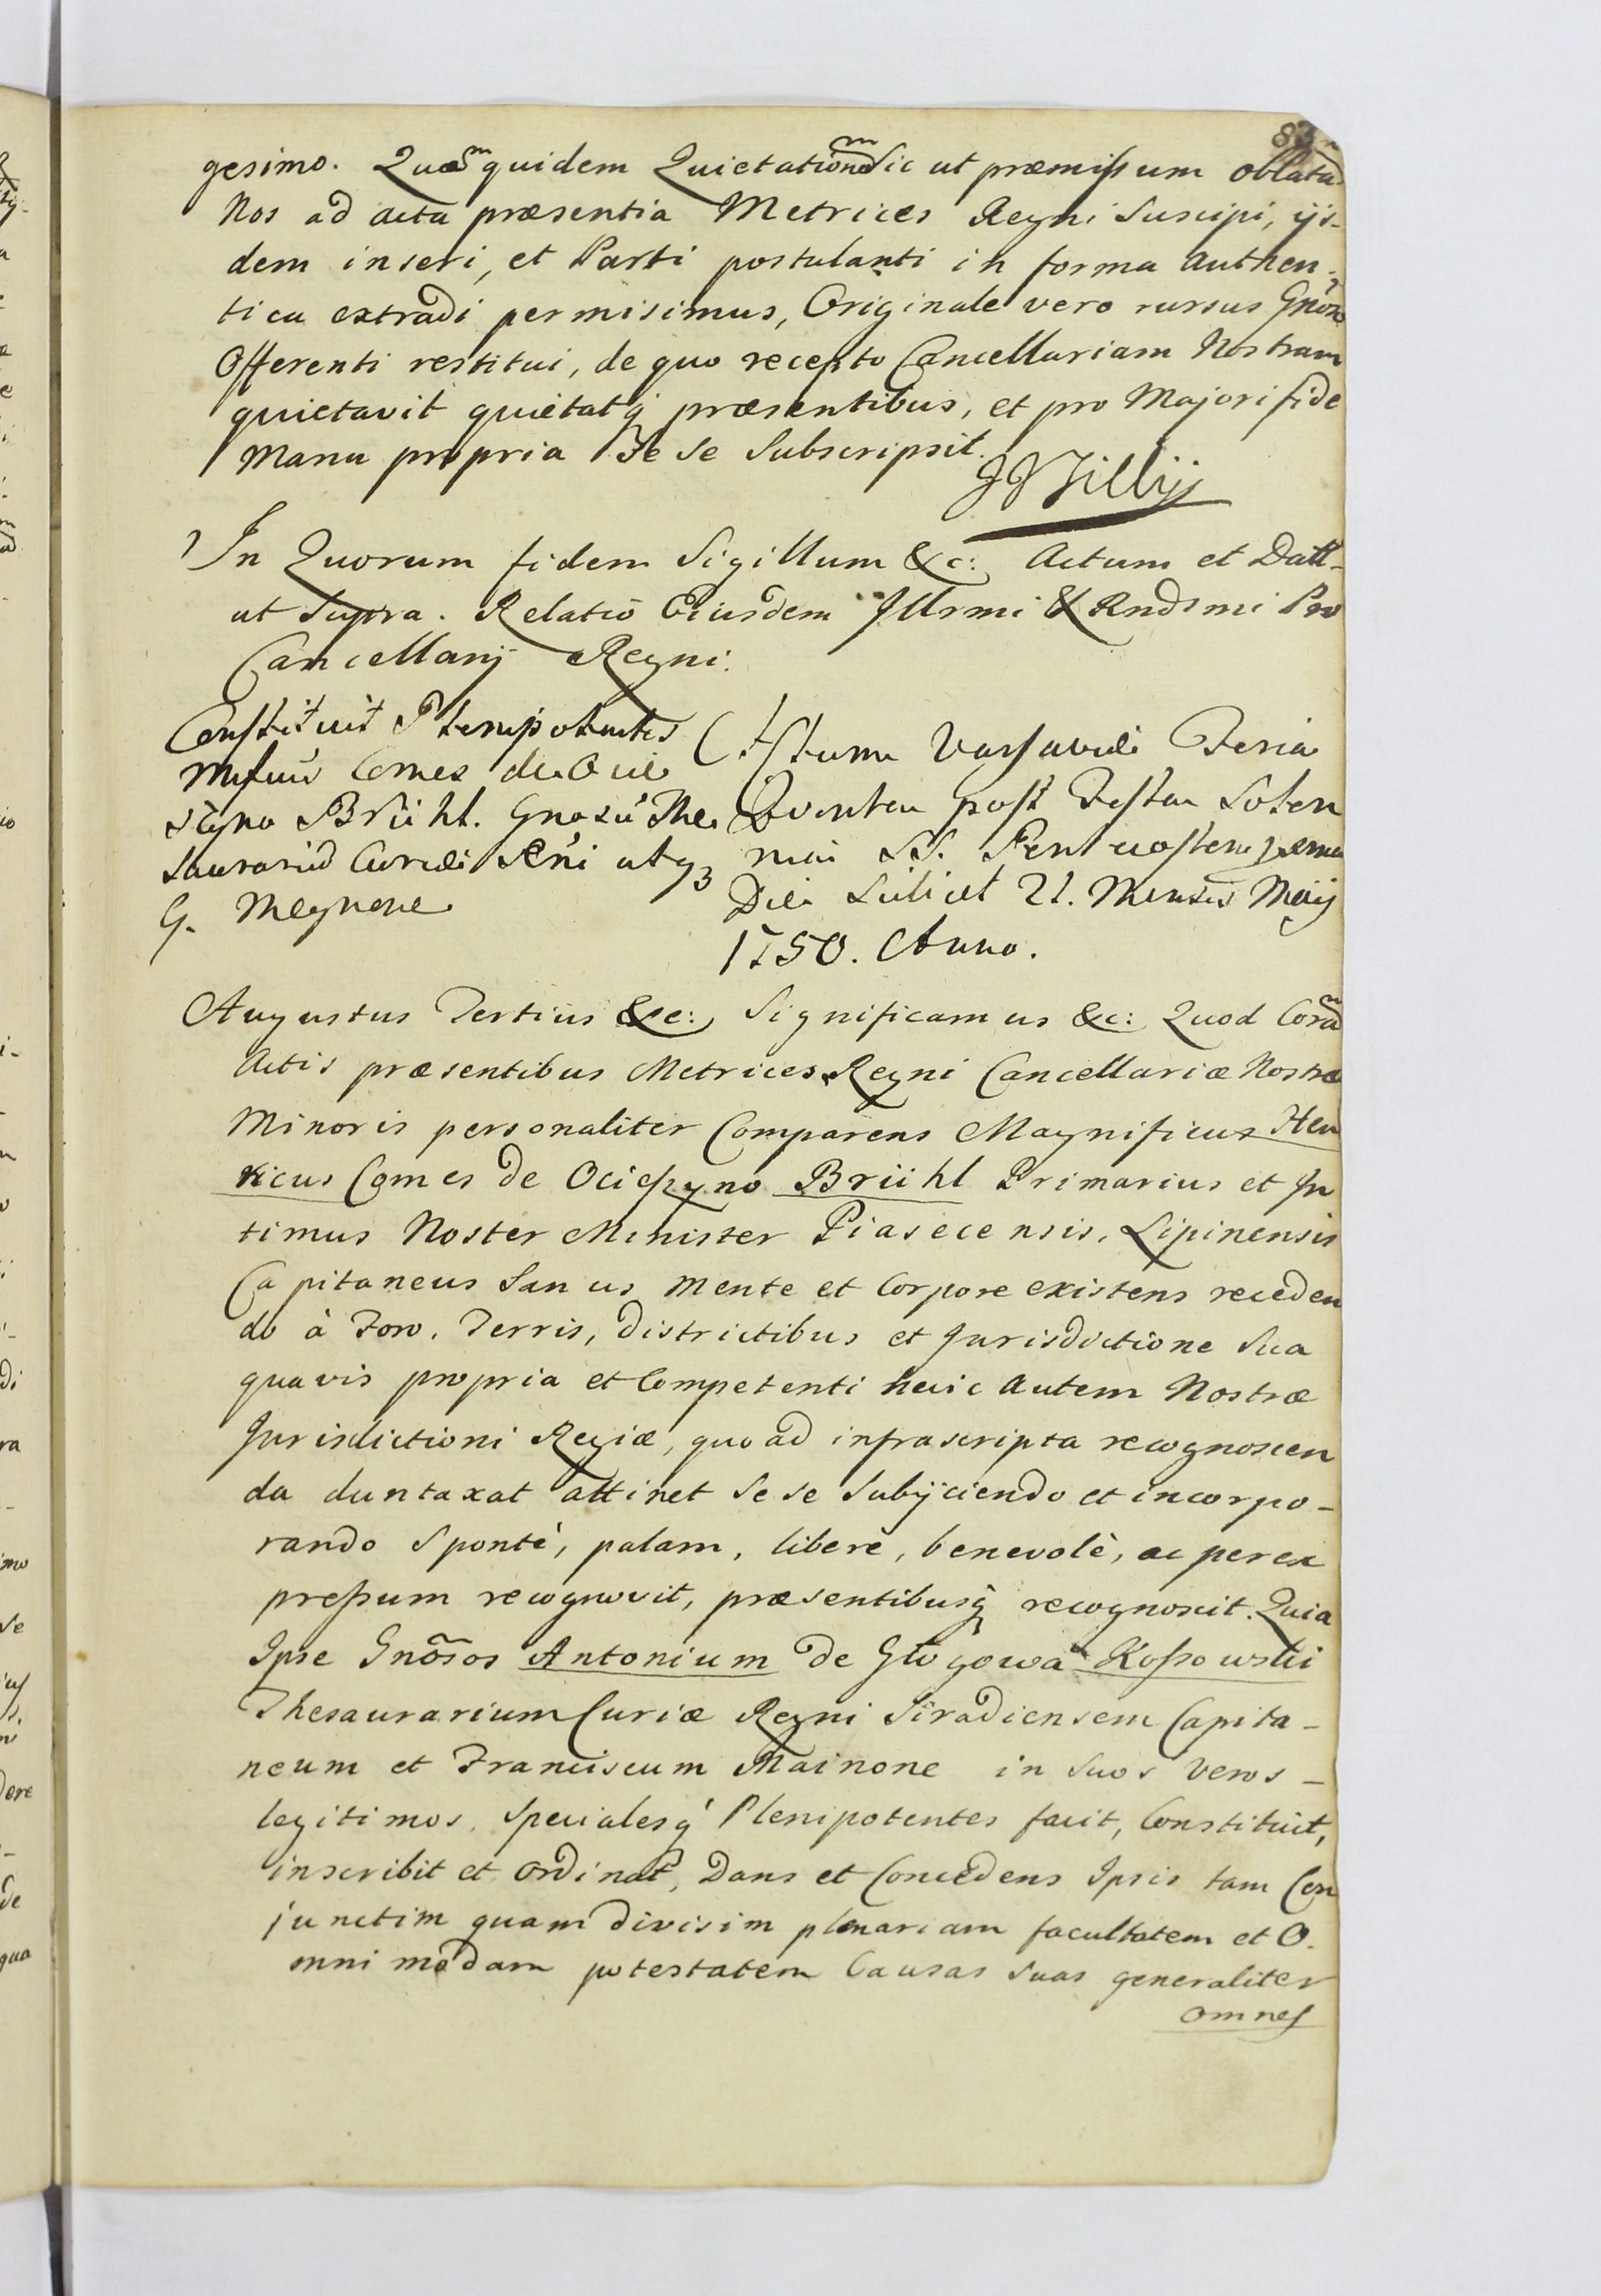 83
gesimo. Quam quidem Quietationem Sic ut præmissum oblatam
Nos ad acta præsentia Metrices Regni Suscipi, ijs-
dem inseri, et Parti postulanti in forma authen-
tica extradi permisimus, Originale vero rursus Gnoso
Offerenti restitui, de quo recepto Cancellariam Nostram
quietavit quietatq præsentibus, et pro Majori fide
Manu propria Se se Subscripsit.
JJ Tillij
In Quorum fidem Sigillum &c: Actum et Datt-
ut Supra. Relatio Eiusdem Illrmi & Rndsmi Pro
Cancellarij Regni.
Constituit Plenipotentes
Mfcus Comes de Ocie
szyno Brühl. Gnosū The
saurariū Curiæ Rñi atq3
G. Meynone
Actum Varsaviæ Feria
Quinta post Festa Solen
nia SS. Pentecostes prma
Die Scilicet 21. Mensis Maij
1750. Anno.
Augustus Tertius &c: Significamus &c: Quod Coram
Actis præsentibus Metrices Regni Cancellariæ Nostræ
Minoris personaliter Comparens Magnificus Hen
ricus Comes de Ocieszyno Brühl Primarius et In
timus Noster Minister Piasecensis, Lipinensis
Capitaneus Sanus mente et Corpore existens receden
do à Foro, Terris, districtibus et Jurisdictione Sua
quavis propria et Competenti huic autem Nostræ
Jurisdictioni Regiæ, quo ad infrascripta recognoscen
da duntaxat attinet se se Subijciendo et incorpo-
rando Spontè, palam, liberè, benevolè, ac per ex
pressum recognovit, præsentibusq recognoscit. Quia
Ipse Gnõsos Antonium de Głogowa Kossowski
Thesaurarium Curiæ Regni Siradiensem Capita-
neum et Franciscum Mainone in Suos Veros-
legitimos, Specialesq Plenipotentes facit, Constituit,
inscribit et ordinat, Dans et Concedens Ipsis tam Con
junctim quam divisim plenariam facultatem et O.
mnimodam potestatem Causas Suas generaliter
omnes